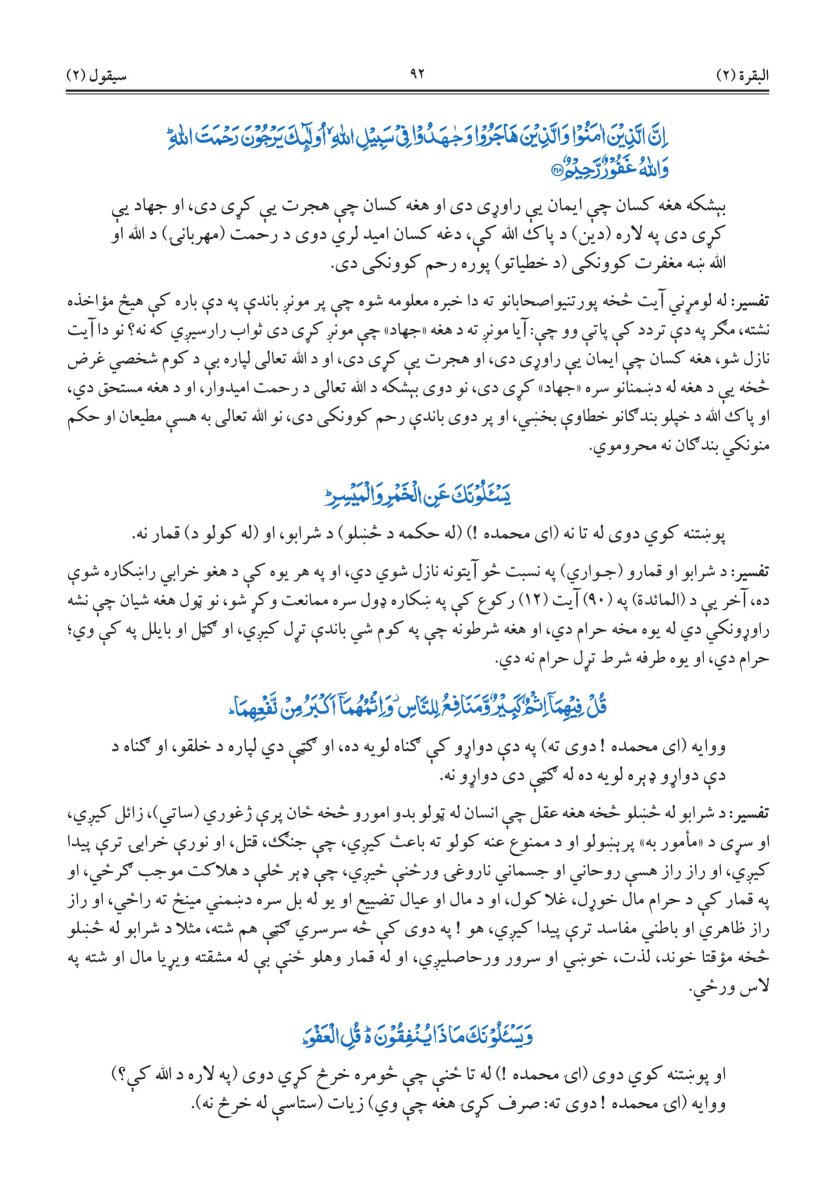 البقرة (۲) ۹۲ سيقول (۲)
اِنَّ الَّذِيْنَ اٰمَنُوْا وَالَّذِيْنَ هَاجَرُوْا وَجٰهَدُوْا فِيْ سَبِيْلِ اللّٰهِ ۙ اُولٰٓئِكَ يَرْجُوْنَ رَحْمَتَ اللّٰهِ ؕ
وَاللّٰهُ غَفُوْرٌ رَّحِيْمٌ ﴿۲۱۸﴾
بېشکه هغه کسان چې ايمان يې راوړی دی او هغه کسان چې هجرت يې کړی دی، او جهاد يې
کړی دی په لاره (دين) د پاك الله کې، دغه کسان اميد لري دوی د رحمت (مهربانۍ) د الله او
الله ښه مغفرت کوونکی (د خطياتو) پوره رحم کوونکی دی.
تفسير: له لومړني آيت څخه پورتنيو اصحابانو ته دا خبره معلومه شوه چې پر مونږ باندې په دې باره کې هيڅ مؤاخذه
نشته، مګر په دې تردد کې پاتې وو چې: آيا مونږ ته د هغه «جهاد» چې مونږ کړی دی ثواب رارسيږي که نه؟ نو دا آيت
نازل شو، هغه کسان چې ايمان يې راوړی دی، او هجرت يې کړی دی، او د الله تعالی لپاره بې د کوم شخصي غرض
څخه يې د هغه له دښمنانو سره «جهاد» کړی دی، نو دوی بېشکه د الله تعالی د رحمت اميدوار، او د هغه مستحق دي،
او پاك الله د خپلو بندګانو خطاوې بخښي، او پر دوی باندې رحم کوونکی دی، نو الله تعالی به هسې مطيعان او حکم
منونکي بندګان نه محروموي.
يَسْـَٔلُوْنَكَ عَنِ الْخَمْرِ وَالْمَيْسِرِ ؕ
پوښتنه کوي دوی له تا نه (ای محمده !) (له حکمه د څښلو) د شرابو، او (له کولو د) قمار نه.
تفسير: د شرابو او قمارو (جوارې) په نسبت څو آيتونه نازل شوي دي، او په هر يوه کې د هغو خرابي راښکاره شوې
ده، آخر يې د (المائدة) په (۹۰) آيت (۱۲) رکوع کې په ښکاره ډول سره ممانعت وکړ شو، نو ټول هغه شيان چې نشه
راوړونکي دي له يوه مخه حرام دي، او هغه شرطونه چې په کوم شي باندې تړل کيږي، او ګټل او بايلل په کې وي؛
حرام دي، او يوه طرفه شرط تړل حرام نه دي.
قُلْ فِيْهِمَآ اِثْمٌ كَبِيْرٌ وَّمَنَافِعُ لِلنَّاسِ ۫ وَاِثْمُهُمَآ اَكْبَرُ مِنْ نَّفْعِهِمَا ؕ
ووايه (ای محمده ! دوی ته) په دې دواړو کې ګناه لويه ده، او ګټې دي لپاره د خلقو، او ګناه د
دې دواړو ډېره لويه ده له ګټې دی دواړو نه.
تفسير: د شرابو له څښلو څخه هغه عقل چې انسان له ټولو بدو امورو څخه ځان پرې ژغوري (ساتي)، زائل کيږي،
او سړی د «مأمور به» پرېښولو او د ممنوع عنه کولو ته باعث کيږي، چې جنګ، قتل، او نورې خرابۍ ترې پيدا
کيږي، او راز راز هسې روحاني او جسماني ناروغۍ ورځنې خيږي، چې ډېر ځلې د هلاکت موجب ګرځي، او
په قمار کې د حرام مال خوړل، غلا کول، او د مال او عيال تضييع او يو له بل سره دښمني مينځ ته راځي، او راز
راز ظاهري او باطني مفاسد ترې پيدا کيږي، هو ! په دوی کې څه سرسري ګټې هم شته، مثلا د شرابو له څښلو
څخه مؤقتا خوند، لذت، خوښي او سرور ورحاصليږي، او له قمار وهلو ځنې بې له مشقته وړيا مال او شته په
لاس ورځي.
وَيَسْـَٔلُوْنَكَ مَاذَا يُنْفِقُوْنَ ۬ؕ قُلِ الْعَفْوَ ؕ
او پوښتنه کوي دوی (ای محمده !) له تا ځنې چې څومره خرڅ کړي دوی (په لاره د الله کې؟)
ووايه (ای محمده ! دوی ته: صرف کړئ هغه چې وي) زيات (ستاسې له خرڅ نه).